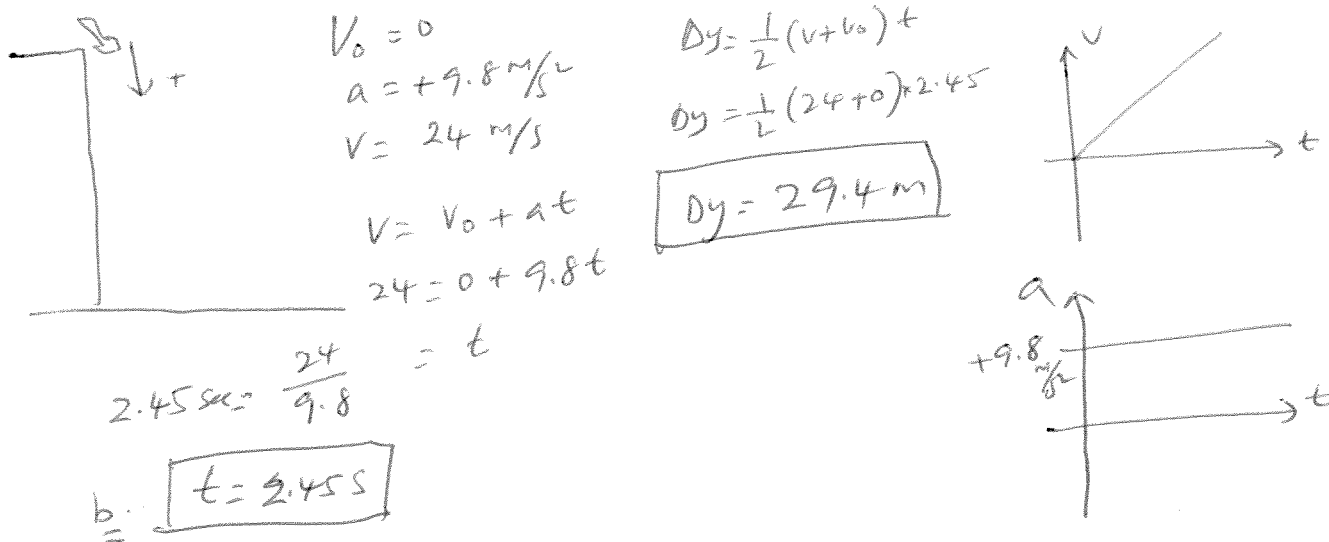 +
V₀ = 0
a = +9.8 m/s²
V = 24 m/s
V = V₀ + at
24 = 0 + 9.8t
2.45 sec = 24/9.8 = t
b. t = 2.45 s
Δy = 1/2 (v+v₀) t
Δy = 1/2 (24+0) × 2.45
Δy = 29.4 m
v
t
a
+9.8 m/s²
t